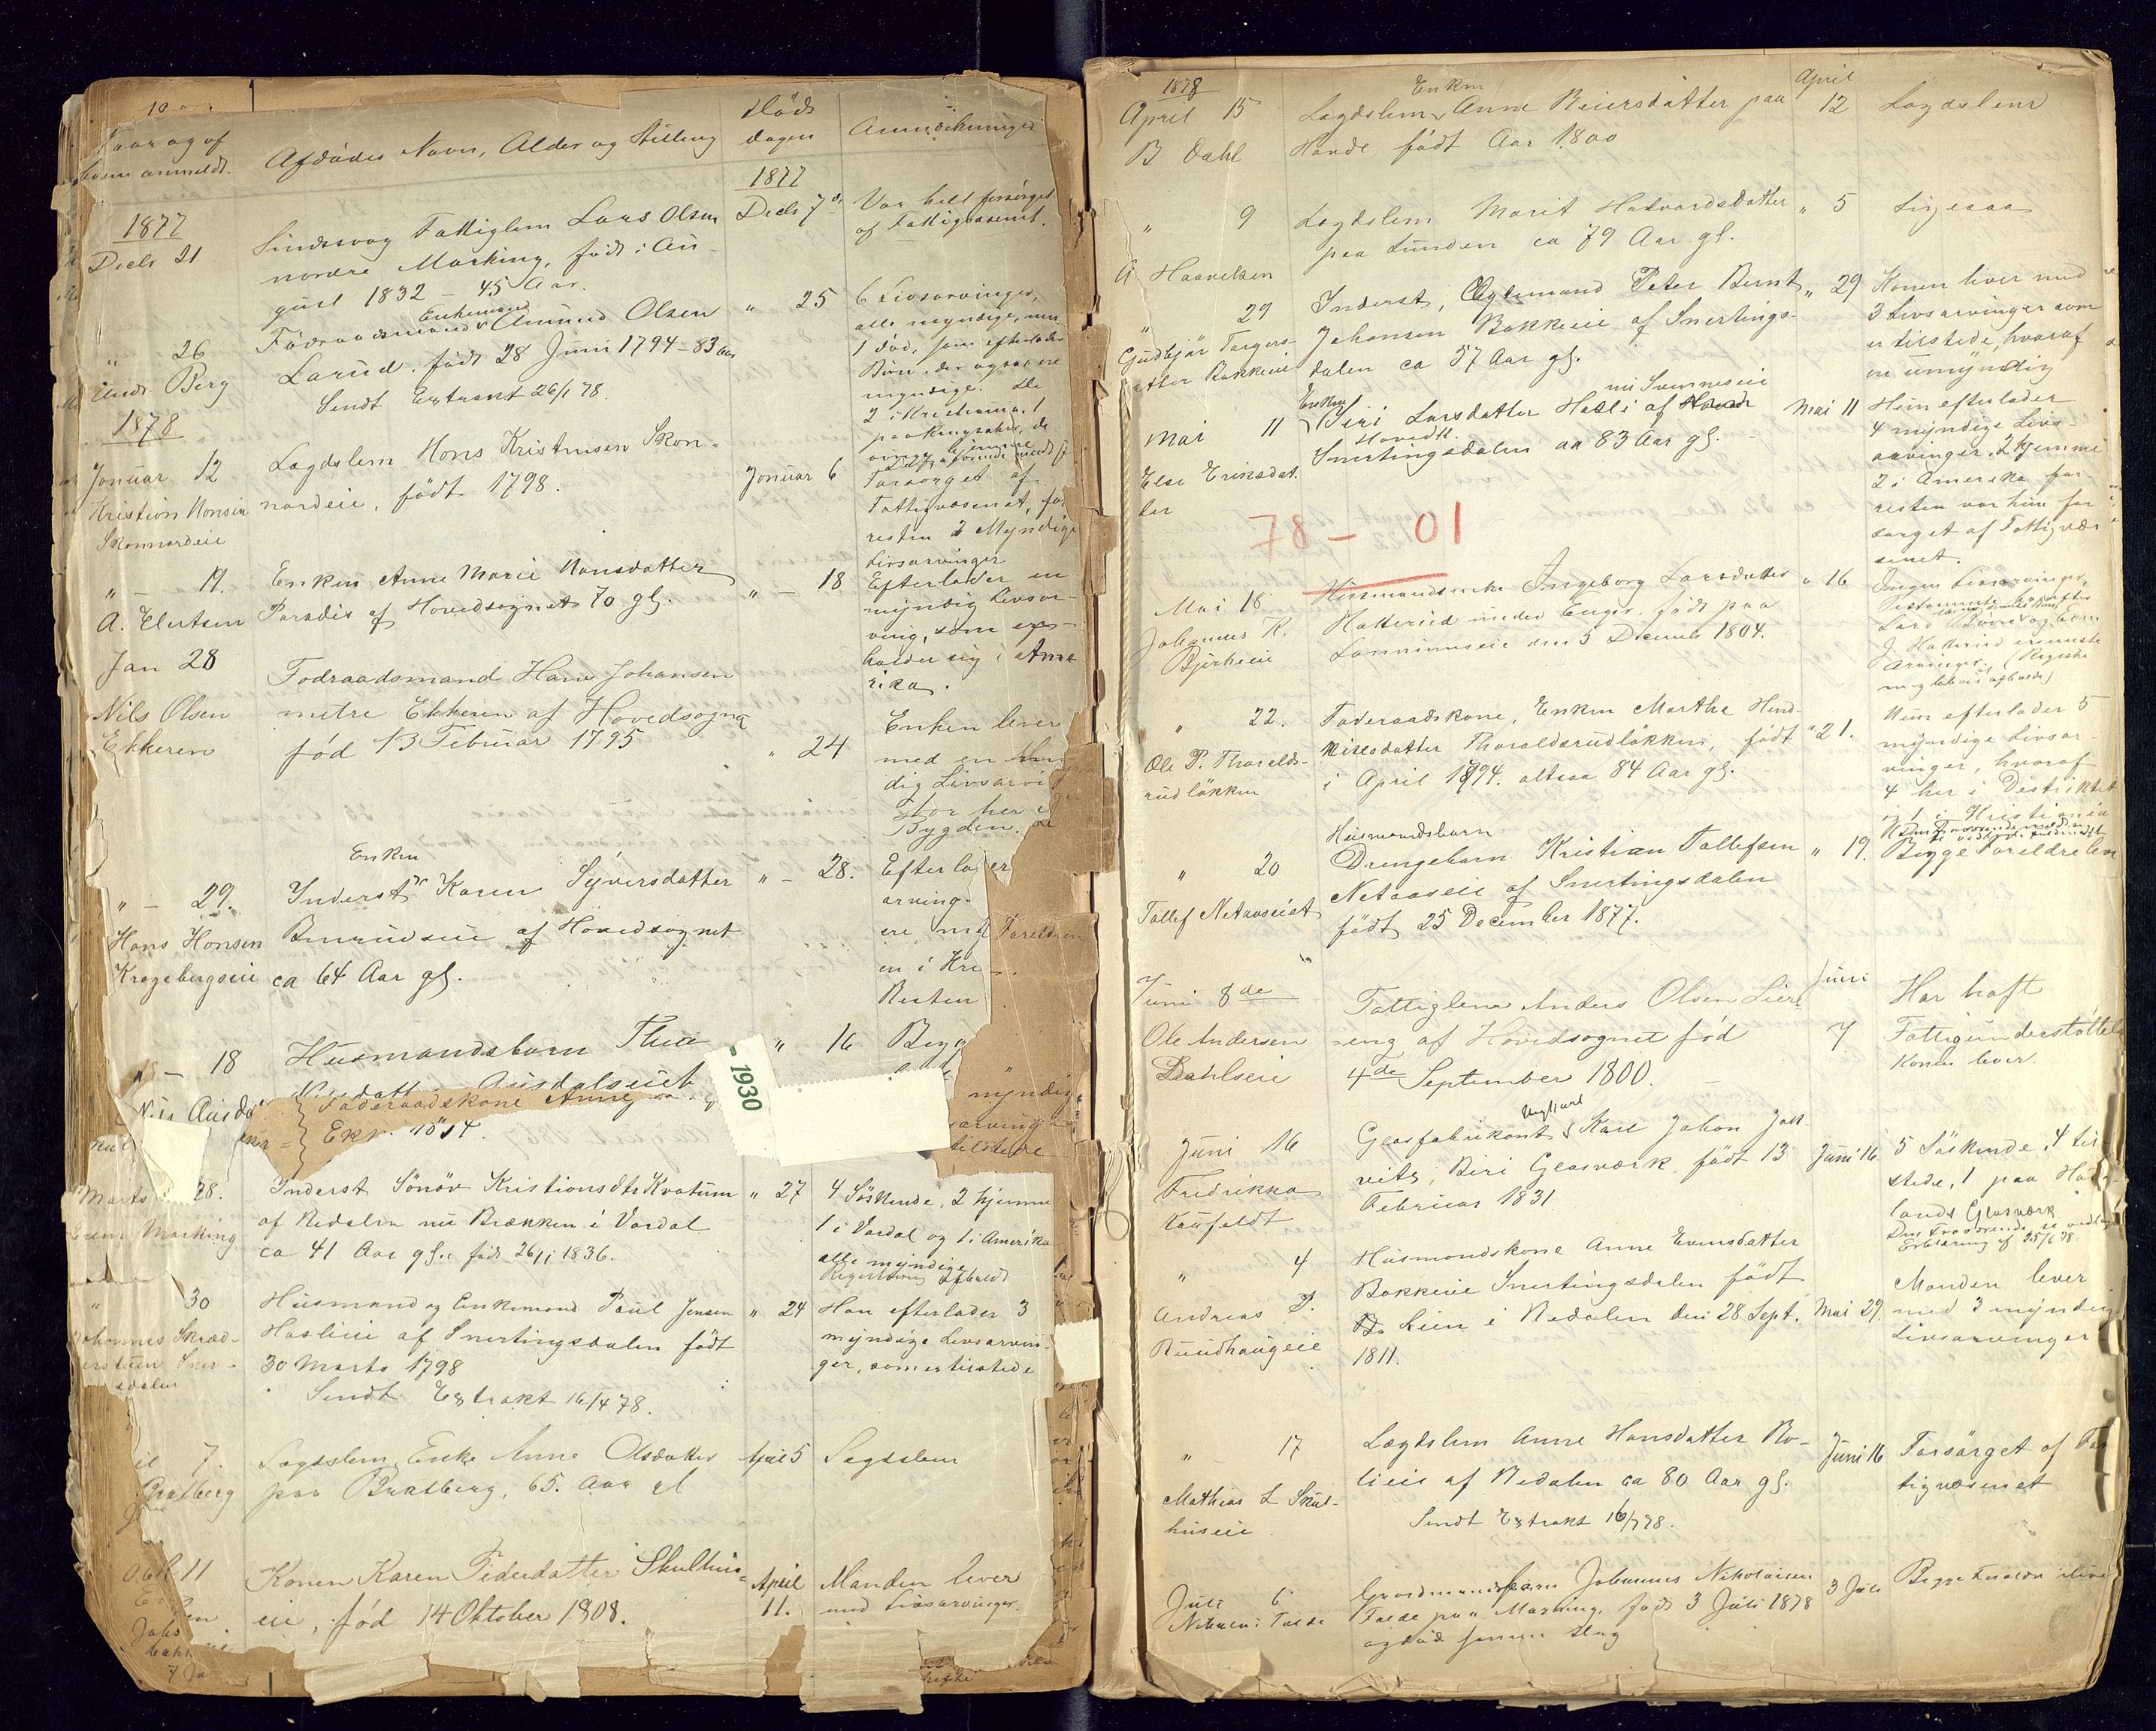 Afdødes Navn, Alder og Stilling
Døds
dagen
Anmærkninger
anmeldt.
1877
Decbr 21
Sindssvag Fattiglem Lars Olsen
nordre Markeng, født i Au-
gust 1832 – 45 Aar.
1877
Decbr 7de
Var helt forsørget
af Fattigvæsenet.
" 26
Berg
Enkemand
Føderaadsmand Amund Olsen
Larud. født 28 Juni 1794 – 83 Aar
Sendt Extrakt 26/1 78.
" 25
6 Livsarvinger,
alle myndige, men
1 død, som efterlader
Børn, der ogsaa ere
myndige. De
2 i Kristiania, 1
paa Ringsaker, de
øvrige hjemme
1878
Januar 12
Kristian Hansen
Skonnordeie
Lægdslem Hans Kristensen Skon-
nordeie, født 1798.
Januar 6
Forsørget af
Fattigvæsenet, for
resten 2 Myndige
Livsarvinger
" – 19.
A. Elertsen
Enken Anne Marie Hansdatter
Paradis af Hovedsognet 70 gl.
" – 18
Efterlader en
myndig Livsar-
ving, som op-
holder sig i Ame
rika.
Jan 28
Nils Olsen
Ekkeren
Fodraadsmand Hans Johansen
mitre Ekkeren af Hovedsogne
fød 13 Februar 1795
" 24
Enken lever
med en
dig Livsarvi
her i
Bygden.
" – 29.
Hans Hansen
Kragebergseie
Enken
Inderst Karen Syversdatter
Benrudseie af Hovedsognet
ca 64 Aar gl.
" – 28.
Efterla er
arving.
ere
en i Kri
Resten
Foreldren
" – 18
Nils
Husmandsbarn Thea
" 16
Føderaadskone Anne
– 1930
myndig
arving
tilstede
Marts 28.
Even Markeng
Inderst Sönöv Kristiansdtr Kvatum
af Redalen nu Brækken i Vardal
ca 41 Aar gl. født 26/1 1836.
" 27
4 Söskende, 2 hjemme
1 i Vardal og 1 i Amerika
alle myndige
" 30
Johannes Skræd-
erstuen Sner-
sdalen
Husmand og Enkemand Paul Jensen
Haslieie af Snertingsdalen født
30 Marts 1798
Sendt Extrakt 16/4 78.
" 24
Han efterlader 3
myndige Livsarvin-
ger, som er tilstede
il 7.
Bratberg
Lægdslem, Enke Anne Olsdatter
paa Bratberg, 65. Aar gl
April 5
Lægdslem
April 11
Konen Karen Pedersdatter Skulhus-
eie, fød 14 Oktober 1808.
April
11.
Manden lever
med Livsarvinger.
1878
April 15
B Dahl
Enken
Lægdslem Anne Reiersdatter paa
Hovde født Aar 1800
April
12
Lægdslem
" 9
A Haavelsen
Lægdslem Marit Halvardsdatter
paa Lunden ca 79 Aar gl.
" 5
Ligesaa
" 29
Gudbjör Torgers-
atter Bakkeeie
Inderst, Ægtemand Peter Bernt
Johansen Bakkeeie af Snertings-
dalen ca 57 Aar gl.
" 29
Konen lever med
3 Livsarvinger som
er tilstede, hvoraf
ere umyndig
Mai 11
Else Eriksdat-
ter
Enken nu Svenneseie
Siri Larsdatter Hasli af
Hovedk.
Snertingsdalen aa 83 Aar gl.
Mai 11
Hun efterlader
4 myndige Livs-
arvinger, 2 hjemme
2 i Amerika for
resten var hun for
sørget af Fattigvæ
senet.
10 – 87
Mai 18
Johannes K.
Bjerkeeie
Husmandsenke Ingeborg Larsdatter
Hatterud under Enger, født paa
den 5 December 1804.
" 16
Ingen Livsarvinger,
" 22.
Ole P. Thoralds-
rudløkken
Føderaadskone, Enken Marthe Hend-
riksdatter Thoraldsrudløkken, født
i April 1794. altsaa 84 Aar gl.
" 21.
Hun efterlader 5
myndige Livsar-
vinger, hvoraf
4 her i Distriktet
og 1 i Kristiania
" 20
Tollef Netaaseiet
Husmandsbarn
Drengebarn Kristian Tollefsen
Netaaseie af Snertingsdalen
født 25 December 1877.
" 19.
Begge Foreldre lever
Juni 8de
Ole Andersen
Dahlseie
Fattiglem Anders Olsen Lier
-eng af Hovedsognet fød
4de September 1800.
Juni
7
Har haft
Fattigunderstøttelse
Konen lever.
Juni 16
Fredrikka
Kaufeldt
Ungkarl
Glasfabrikant Karl Johan
Biri Glasværk, født 13
Februar 1831
Juni 16
5 Söskende, 4 til-
stede, 1 paa Hade-
lands Glasværk
Erklæring af 25/6 78.
" 4
Andreas J.
Ruudhaugeie
Husmandskone Anne Evensdatter
Bakkeeie Snertingsdalen født
Lien i Redalen den 28 Sept.
1811.
Mai 29.
Manden lever
med 3 myndig
Livsarvinger
" 17
Mathias L Skul-
huseie
Lægdslem Anne Hansdatter Ro-
lieie af Redalen ca 80 Aar gl.
Sendt Extrakt 16/7 78.
Juni 16
Forsørget af Fat
tigvæsenet
Juli 6
Nikolai Talde
Gaardmandsbarn Johannes Nikolaisen
Talde paa Markeng, født 3 Juli 1878
og død samme Dag
3 Juli
Begge Forældre ilive